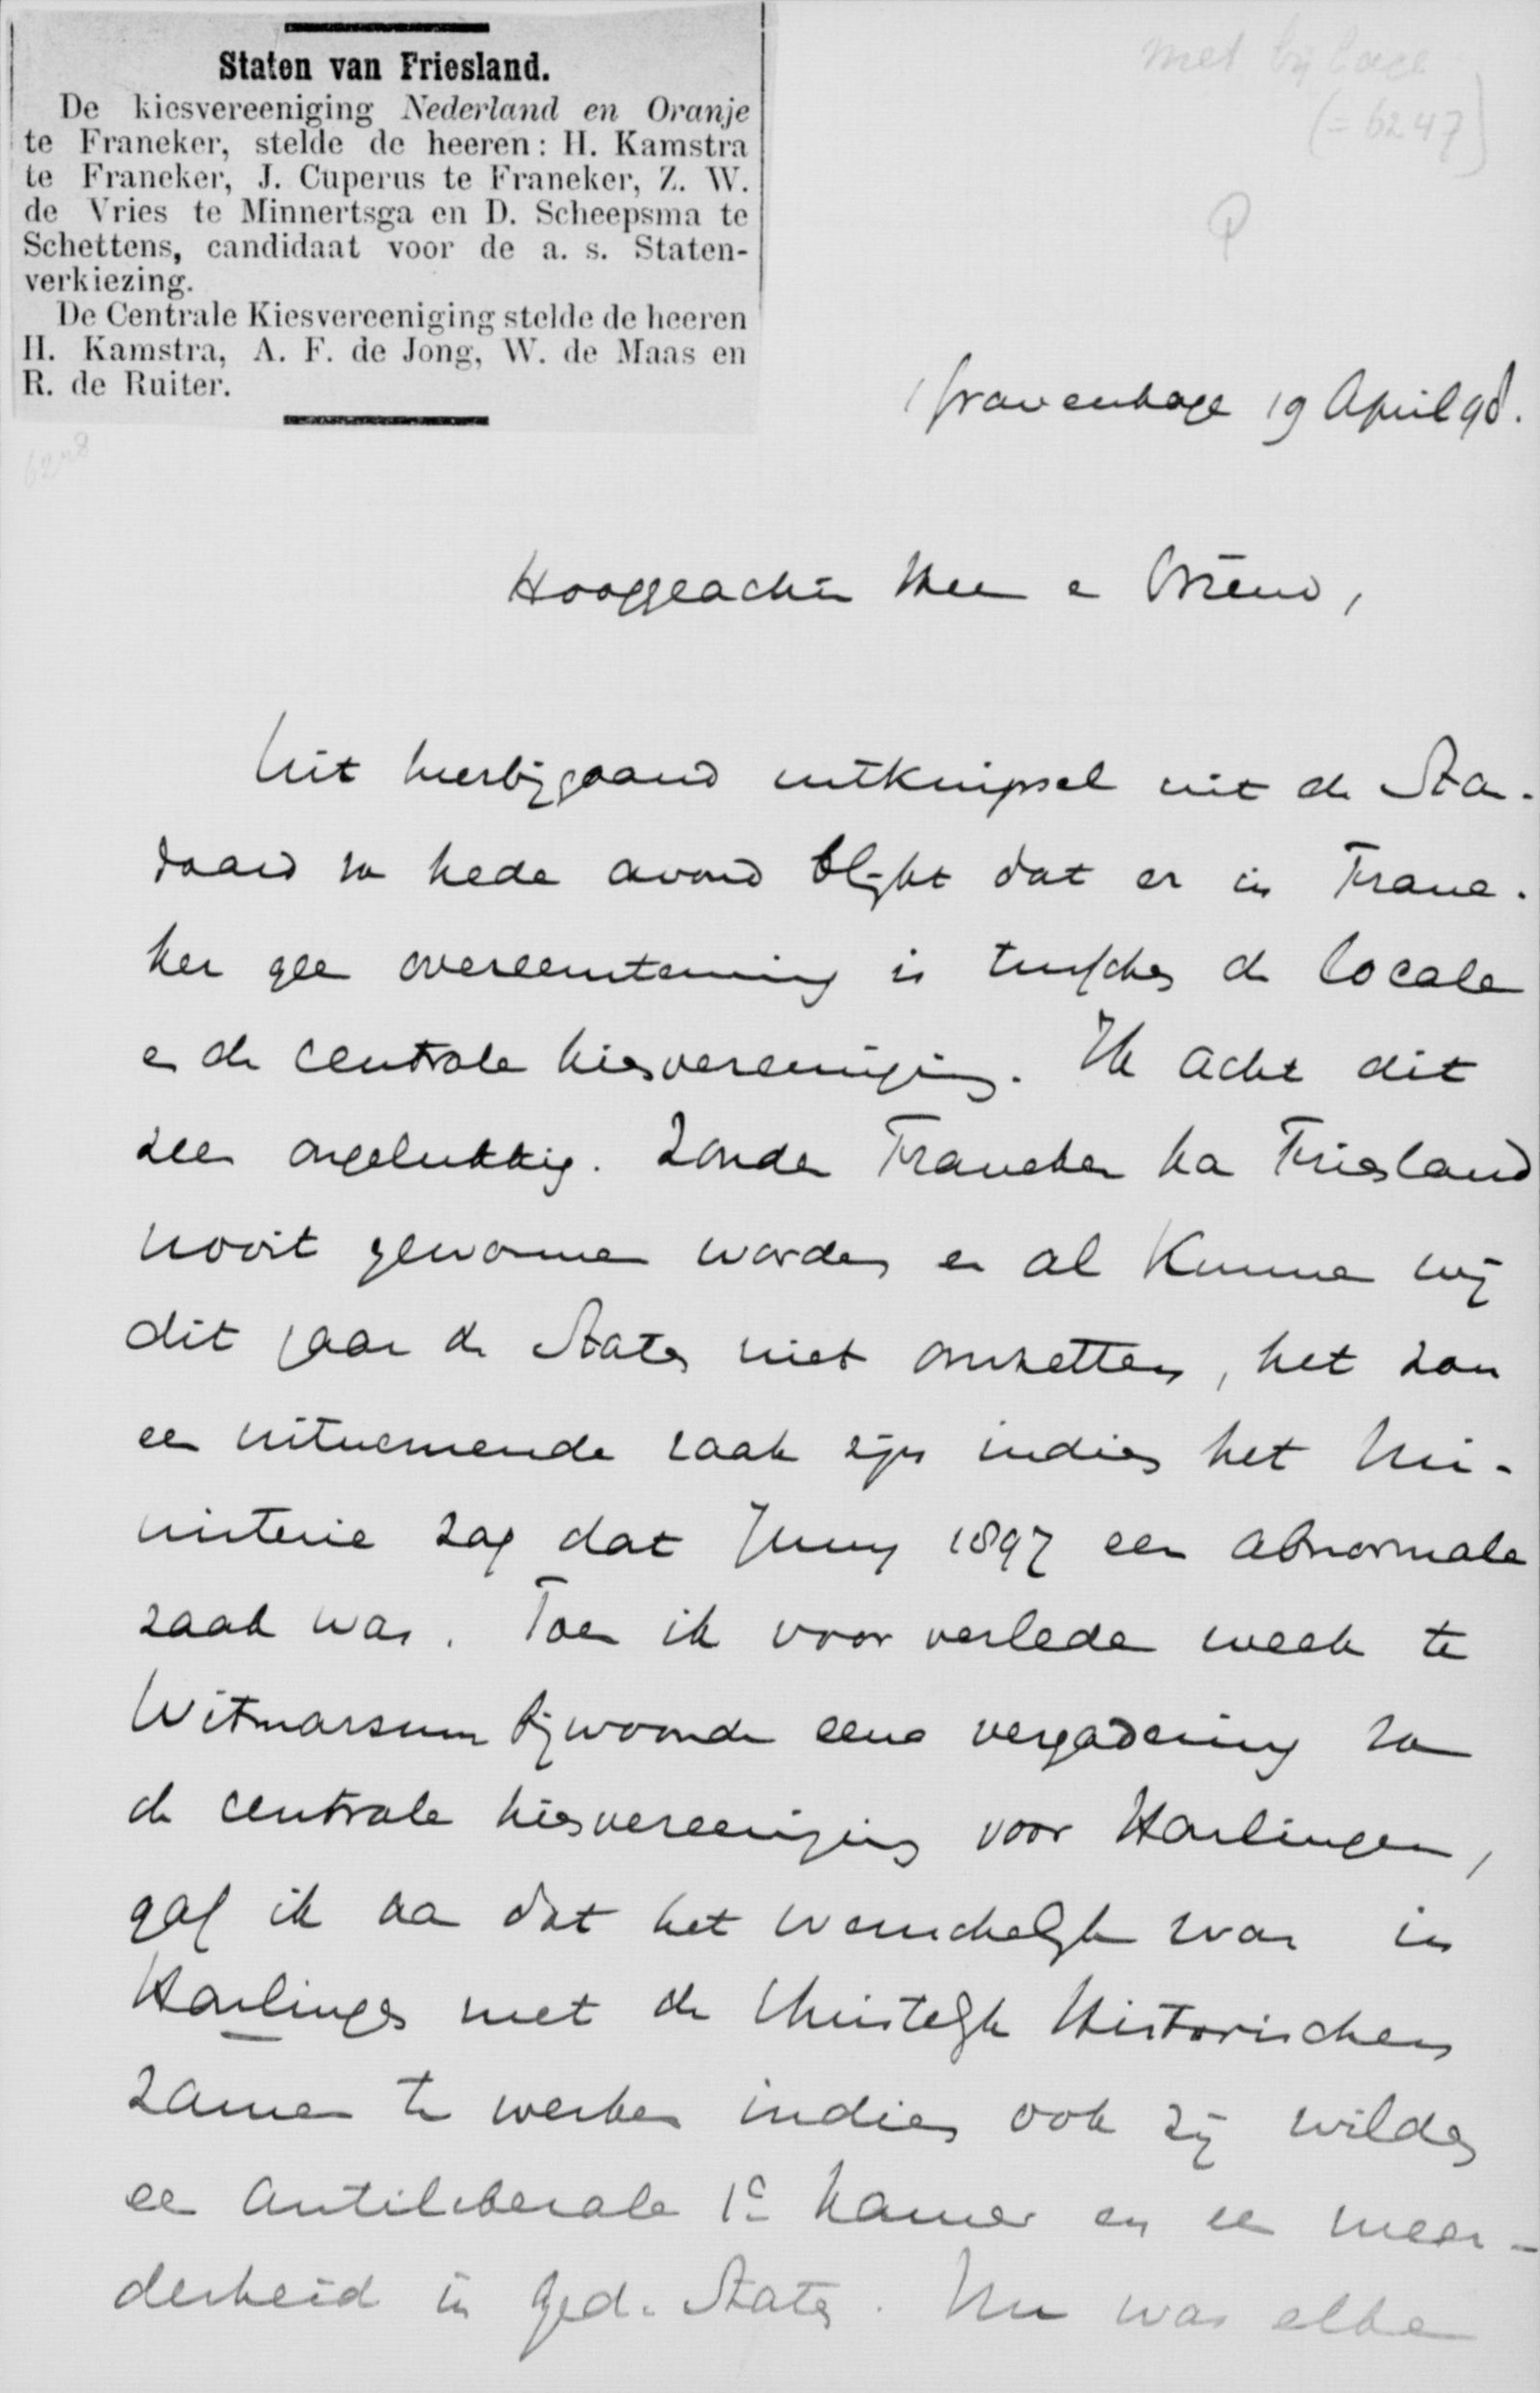 Staten van Friesland.
De kiesvereeniging Nederland en Oranje
te Franeker, stelde de heeren: H. Kamstra
te Franeker, J. Cuperus te Franeker, Z. W.
de Vries te Minnertsga en D. Scheepsma te
Schettens, candidaat voor de a. s. Staten-
verkiezing.
De Centrale Kiesvereeniging stelde de heeren
H. Kamstra, A. F. de Jong, W. de Maas en
R. de Ruiter.
met bijlage
(= 6247)
6248
's Gravenhage 19 April 98.
Hooggeachte Heer en Vriend,
Uit hierbijgaand uitknipsel uit de Stan-
daard van heden avond blijkt dat er in Frane-
ker geen overeenstemming is tusschen de locale
en de centrale kiesvereeniging. Ik acht dit
zeer ongelukkig. Zonder Franeker kan Friesland
nooit gewonnen worden en al kunnen wij
dit jaar de Staten niet omzetten, het zou
een uitnemende zaak zijn indien het Mi-
nisterie zag dat Juny 1897 een abnormale
zaak was. Toen ik voor verleden week te
Witmarsum bijwoonde eene vergadering van
de centrale kiesvereeniging voor Harlingen,
gaf ik aan dat het wenschelijk was in
Harlingen met de Christelijk Historischen
zamen te werken indien ook zij wilden
een antiliberale 1e Kamer en een meer-
derheid in Ged. Staten. Nu was elke